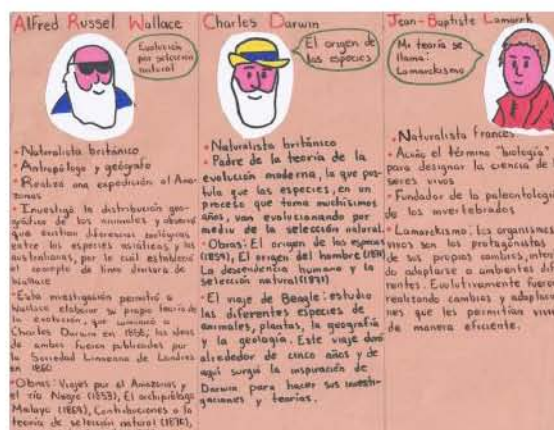 Alfred Russel Wallace
Evolución
por selección
natural
• Naturalista británico
• Antropólogo y geógrafo
• Realiza una expedición al Ama-
zonas
• Investigó la distribución geo-
gráfica de los animales y observó
que existían diferencias zoológicas
entre las especies asiáticas y las
australianas, por lo cual estableció
el concepto de línea divisora de
Wallace
• Esta investigación permitió a
Wallace elaborar su propia teoría de
la evolución, que comunicó a
Charles Darwin en 1858; las ideas
de ambos fueron publicadas por
la Sociedad Linneana de Londres
en 1860
• Obras: Viajes por el Amazonas y
el río Negro (1853), El archipiélago
Malayo (1869), Contribuciones a la
teoría de selección natural (1870),
Charles Darwin
El origen de
las especies
• Naturalista británico
• Padre de la teoría de la
evolución moderna, la que pos-
tula que las especies, en un
proceso que toma muchísimos
años, van evolucionando por
medio de la selección natural.
• Obras: El origen de las especies
(1859), El origen del hombre (1871)
La descendencia humana y la
selección natural (1871)
• El viaje de Beagle: estudió
las diferentes especies de
animales, plantas, la geografía
y la geología. Este viaje duró
alrededor de cinco años y de
aquí surgió la inspiración de
Darwin para hacer sus investi-
gaciones y teorías.
Jean-Baptiste Lamarck
Mi teoría se
llama:
Lamarckismo
• Naturalista Francés
• Acuñó el término "biología"
para designar la ciencia de
seres vivos
• Fundador de la paleontología
de los invertebrados
• Lamarckismo: los organismos
vivos son los protagonistas
de sus propios cambios,
adaptarse a ambientes
Evolutivamente fueron
realizando cambios y
que les permitían
de manera eficiente.